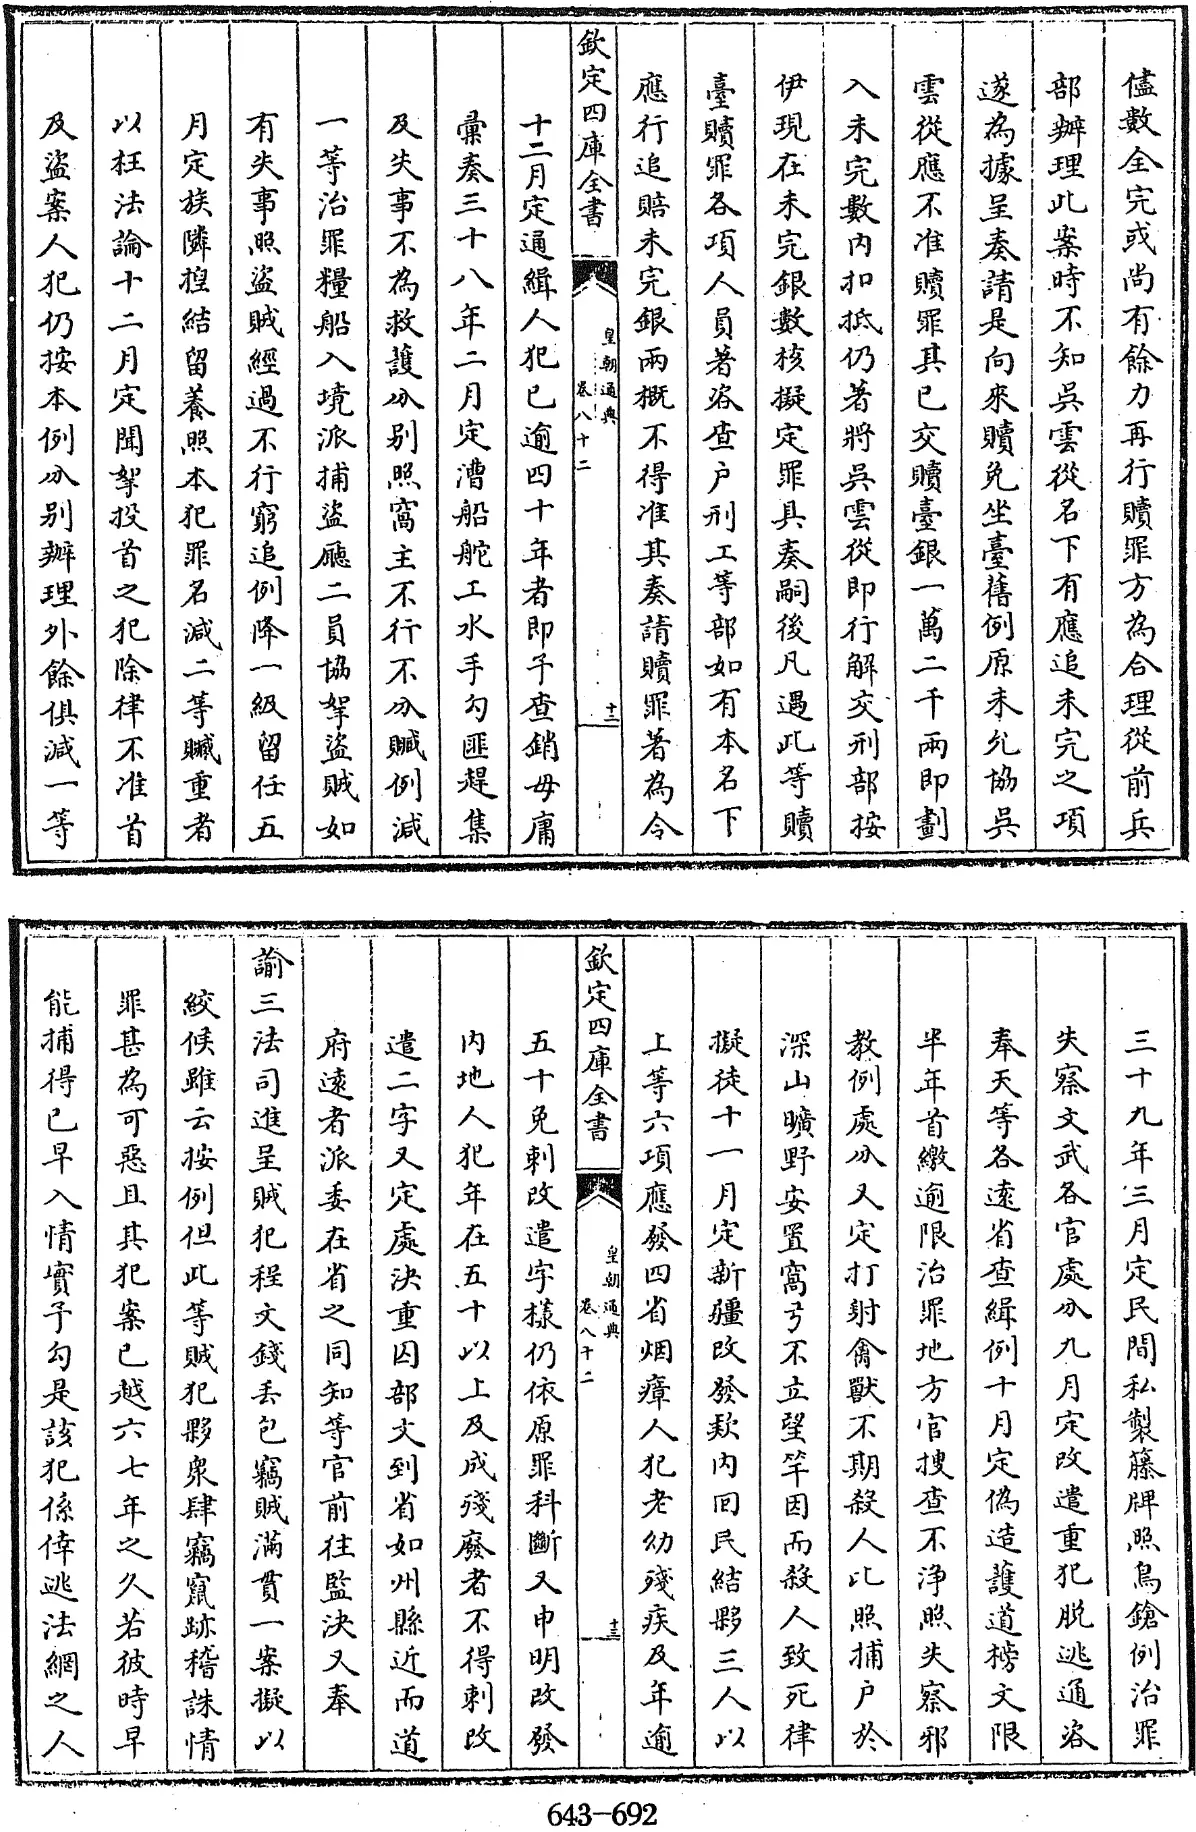 儘數全完或尚有餘力再行贖罪方為合理從前兵
部辦理此案時不知吳雲從名下有應追未完之項
遂為據呈奏請是向來贖免坐臺舊例原未允協吳
雲從應不准贖罪其已交贖臺銀一萬二千兩即劃
入未完數内扣抵仍著將吳雲從即行解交刑部按
伊現在未完銀數核擬定罪具奏嗣後凡遇此等贖
臺贖罪各項人員著咨查户刑工等部如有本名下
應行追賠未完銀兩概不得准其奏請贖罪著為令
欽定四庫全書
皇朝通典
卷八十二
十三
十二月定通緝人犯已逾四十年者即予查銷毋庸
彙奏三十八年二月定漕船舵工水手勾匪趕集
及失事不為救護分别照窩主不行不分贓例減
一等治罪糧船入境派捕盜廳二員協拏盜賊如
有失事照盜賊經過不行窮追例降一級留任五
月定族隣揑結留養照本犯罪名減二等贓重者
以枉法論十二月定聞拏投首之犯除律不准首
及盜案人犯仍按本例分别辦理外餘俱減一等
三十九年三月定民間私製籐牌照鳥鎗例治罪
失察文武各官處分九月定改遣重犯脱逃通咨
奉天等各遠省查緝例十月定偽造護道榜文限
半年首繳逾限治罪地方官搜查不净照失察邪
教例處分又定打射禽獸不期殺人比照捕户於
深山曠野安置窩弓不立望竿因而殺人致死律
擬徒十一月定新疆改發欵内回民結夥三人以
上等六項應發四省烟瘴人犯老幼殘疾及年逾
欽定四庫全書
皇朝通典
卷八十二
十三
五十免刺改遣字樣仍依原罪科斷又申明改發
内地人犯年在五十以上及成殘廢者不得刺改
遣二字又定處決重囚部文到省如州縣近而道
府遠者派委在省之同知等官前往監決又奉
諭三法司進呈賊犯程文錢丢包竊賊滿貫一案擬以
絞候雖云按例但此等賊犯夥衆肆竊竄跡稽誅情
罪甚為可惡且其犯案已越六七年之久若彼時早
能捕得已早入情實予勾是該犯係倖逃法網之人
643-692